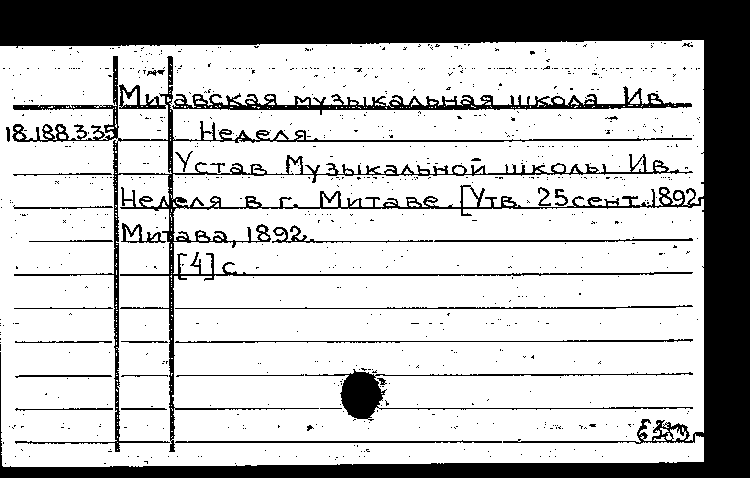 Митавская музыкальная школа Ив.
18.188.3.35 Неделя.
Устав Музыкальной школы Ив.
Неделя в г. Митаве. [Утв. 25 сент. 1892г
Митава, 1892.
[4] с.